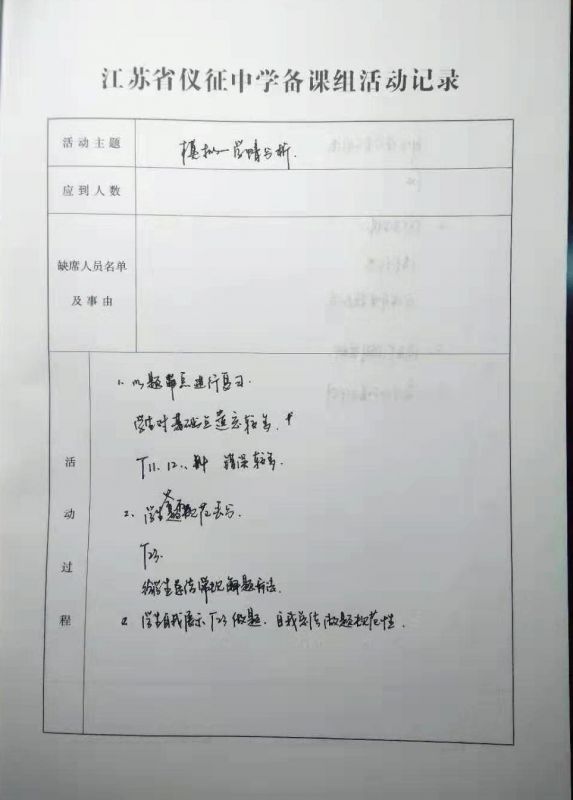 江苏省仪征中学备课组活动记录
活动主题
模拟一学情分析.
应到人数
缺席人员名单
及事由
活动过程
1. 以题带点进行复习.
学生对基础知识遗忘较多.
T11.12.、 错误较多.
2、学生答题规范丢分.
T23.
给学生总结常规解题方法.
学生自我展示T23做题、自我总结做题规范性.